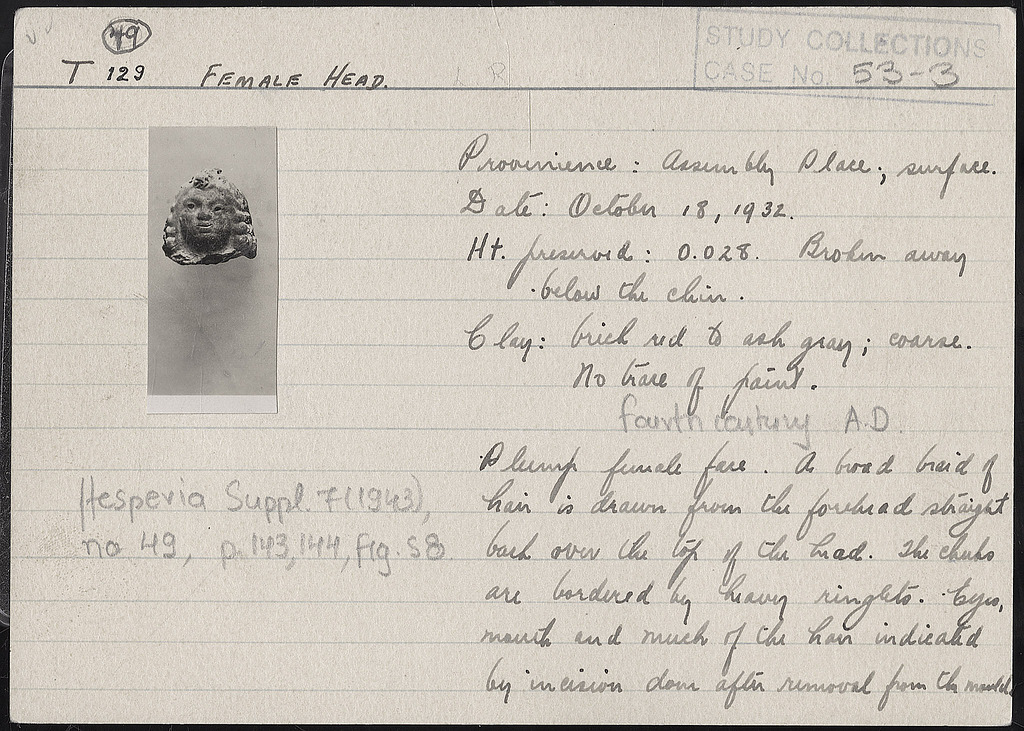 49
STUDY COLLECTIONS
CASE No. 53-3
T 129 FEMALE HEAD.
Provenience: Assembly Place; surface.
Date: October 18, 1932.
Ht. preserved: 0.028. Broken away
below the chin.
Clay: brick red to ash gray; coarse.
No trace of paint.
fourth century A.D.
Plump female face. A broad braid of
hair is drawn from the forehead straight
back over the top of the head. The cheeks
are bordered by heavy ringlets. Eyes,
mouth and much of the hair indicated
by incision done after removal from the mould.
Hesperia Suppl. 7 (1943),
no 49, p. 143, 144, fig. 58